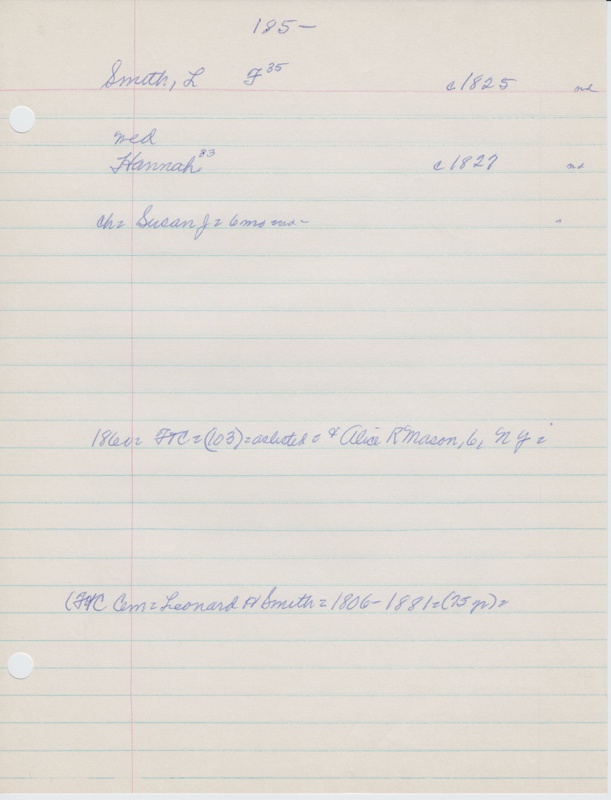 185-
Smith, L F 35 c 1825 md
wed
Hannah 33 c 1827 md
ch = Susan J = 6 mo = md - "
1860 = F+C = (103) = as listed = & Alice R Mason, 6, NY =
(F+C Cem = Leonard H Smith = 1806 - 1881 = (75 yr) =